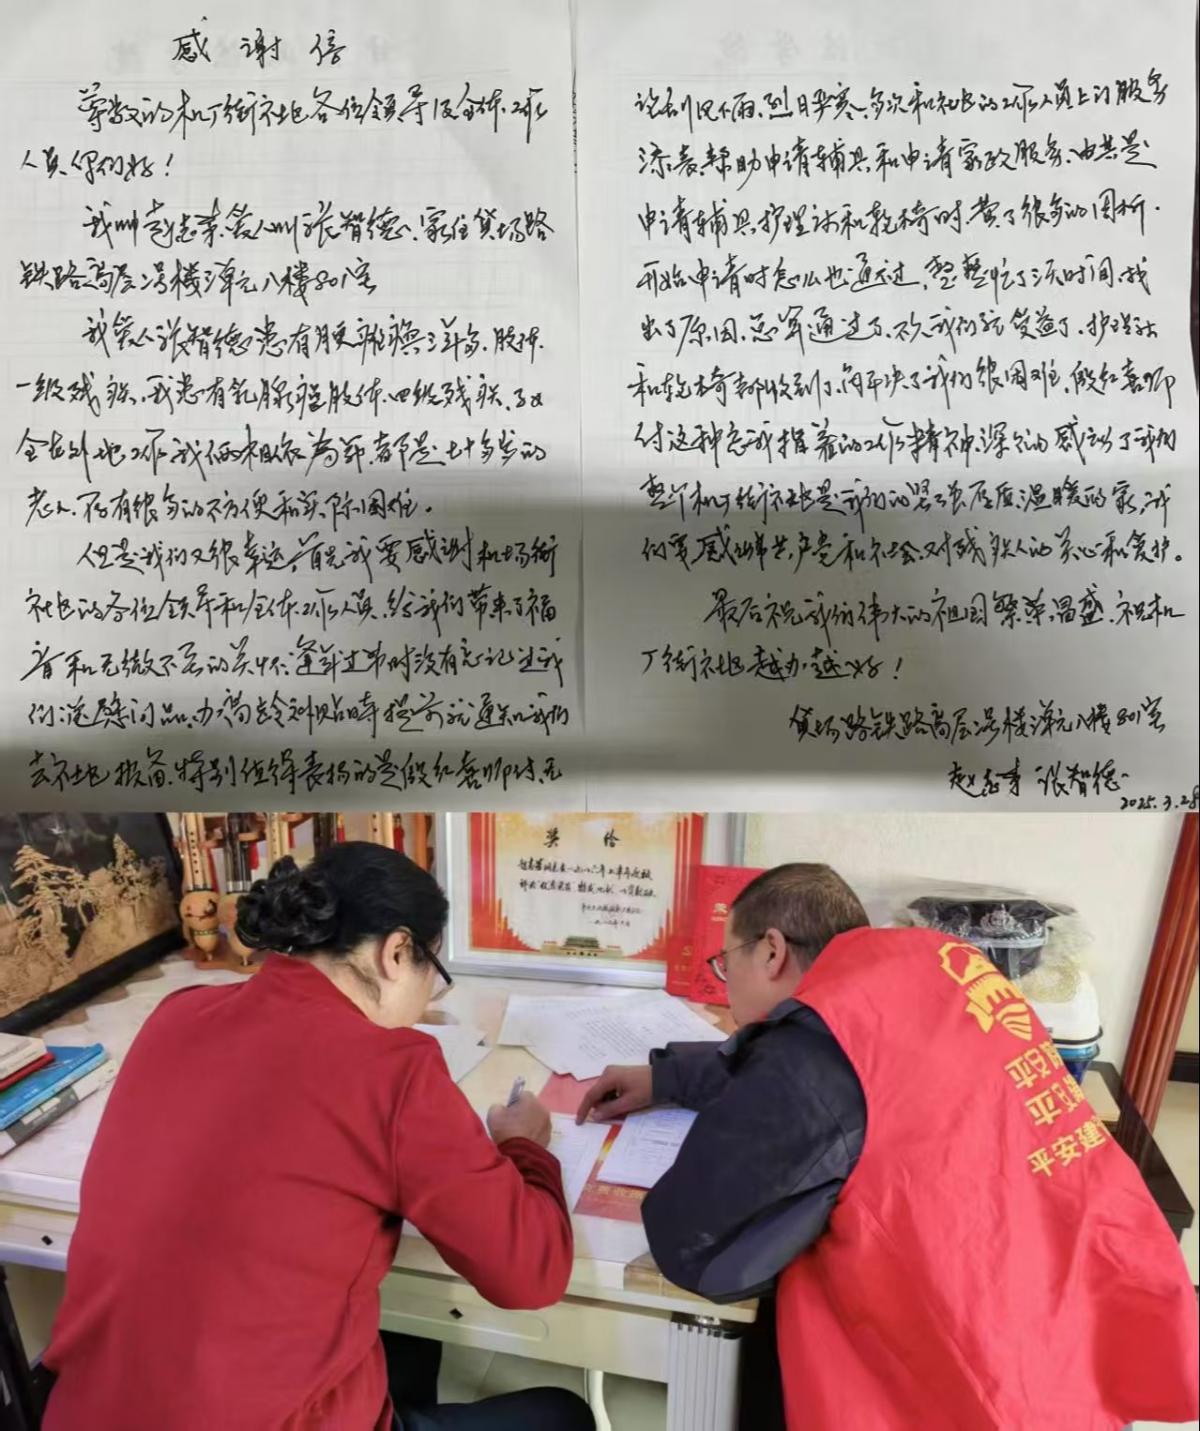 感谢信
尊敬的机厂街社区各位领导及全体工作
人员你们好！
我叫赵志英,爱人叫张智德,家住货场路
铁路高层2号楼2单元八楼801室
我爱人张智德患有腰椎 三年多,肢体
一级残疾,我患有乳腺癌肢体四级残疾,子女
全在外地工作我俩相依为命,都是七十多岁的
老人,存有很多的不方便和实际困难。
但是我们又很幸运,首先我要感谢机场街
社区的各位领导和全体工作人员,给我们带来了福
音和无微不至的关怀,逢年过节时没有忘记过我
们,送慰问品,办高龄补贴时提前就通知我们
去社区报备,特别值得表扬的是殷红喜师付,无
论刮风下雨,烈日严寒,多次和社区的工作人员上门服务
添表,帮助申请辅具和申请家政服务,由其是
申请辅具,护理床和轮椅时,费了很多的周折.
开始申请时怎么也通不过,整整忙了三天时间,找
出了原因,总算通过了,不久我们就受益了,护理床
和轮椅都收到了,解决了我们很困难,殷红喜师
付这种忘我 的工作精神,深深的感动了我们
整个机厂街社区是我们的坚强后盾,温暖的家,我
们要感谢共产党和社会对残疾人的关心和爱护。
最后祝我们伟大的祖国繁荣,昌盛,祝机
厂街社区越办越好！
货场路铁路高层2号楼2单元八楼801室
赵志英 张智德
2025.3.28
奖给
平安建